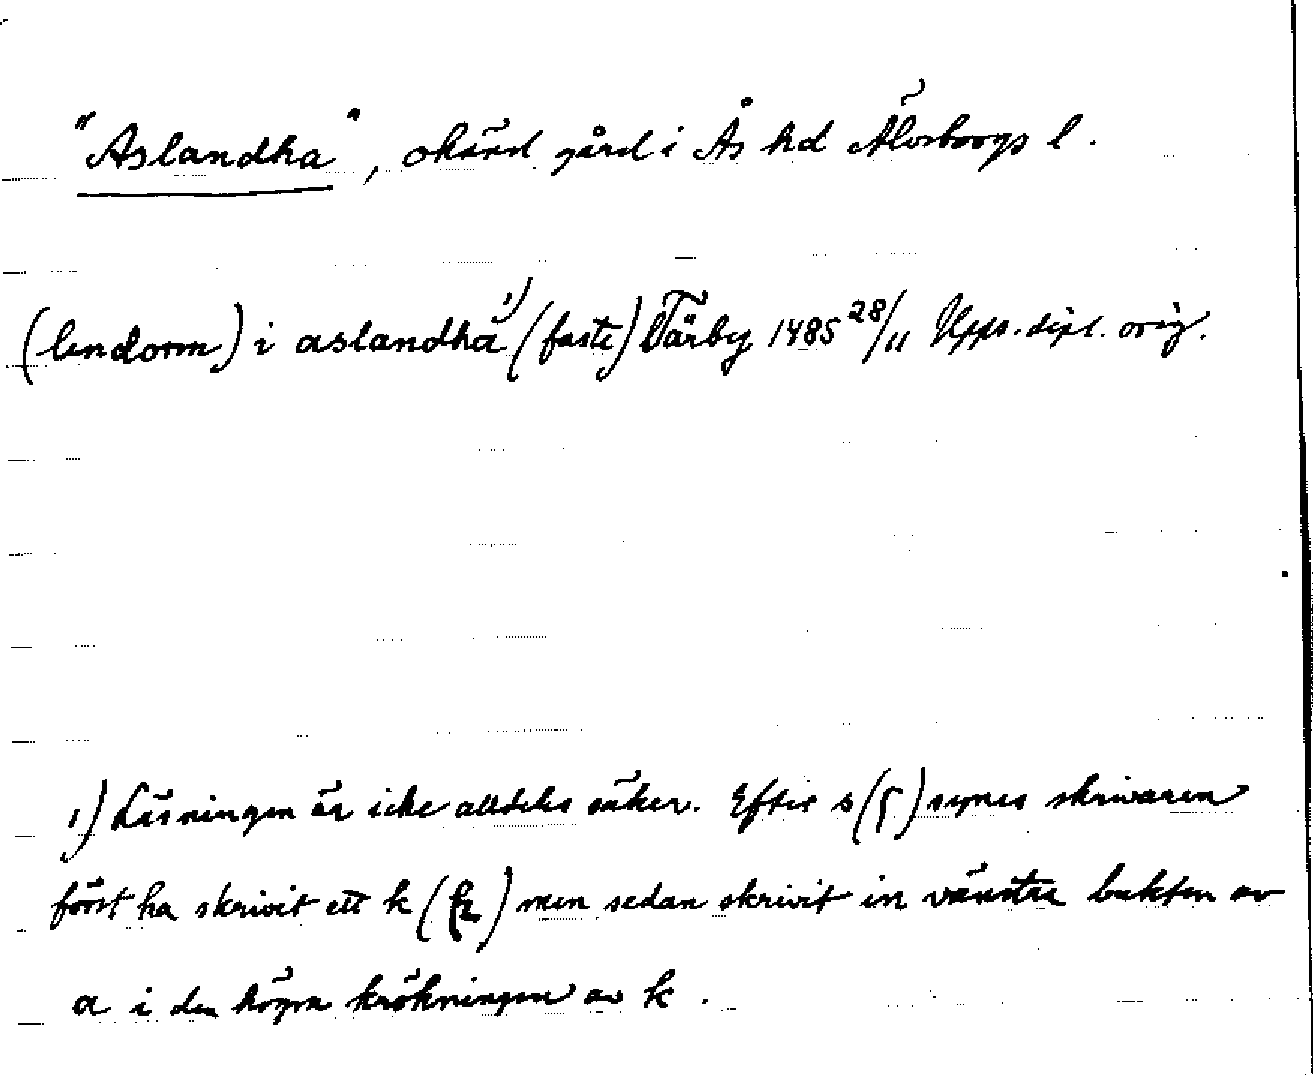 "Aslandha", okänd gård i Ås hd Älvsborgs l.
(lendorm) i aslandha 1) (faste) Tärby 1485 28/11 Upps. dipl. orig.
1) Läsningen är icke alldeles säker. Efter s (ſ) synes skrivaren
först ha skrivit ett k (k) men sedan skrivit in vänstra bukten av
a i den högra krökningen av k.